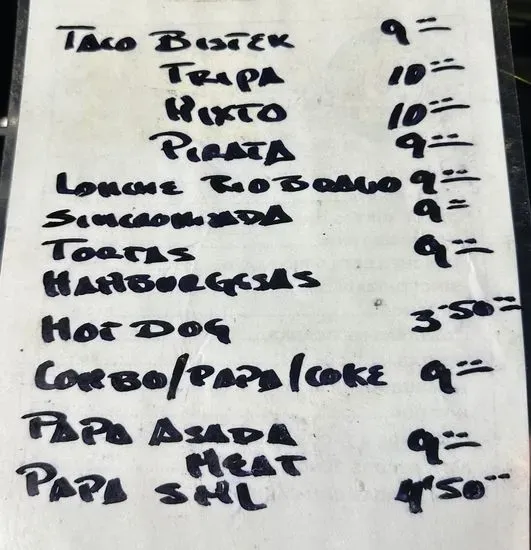 TACO BISTEK 9=
TRIPA 10=
MIXTO 10=
PIRATA 9=
LONCHE RIOBRAVO 9=
SINCRONIZADA 9=
TORTAS 9=
HAMBURGESAS
HOT DOG 3.50=
COMBO/PAPA/COKE 9=
PAPA ASADA 9=
MEAT
PAPA SML 4.50